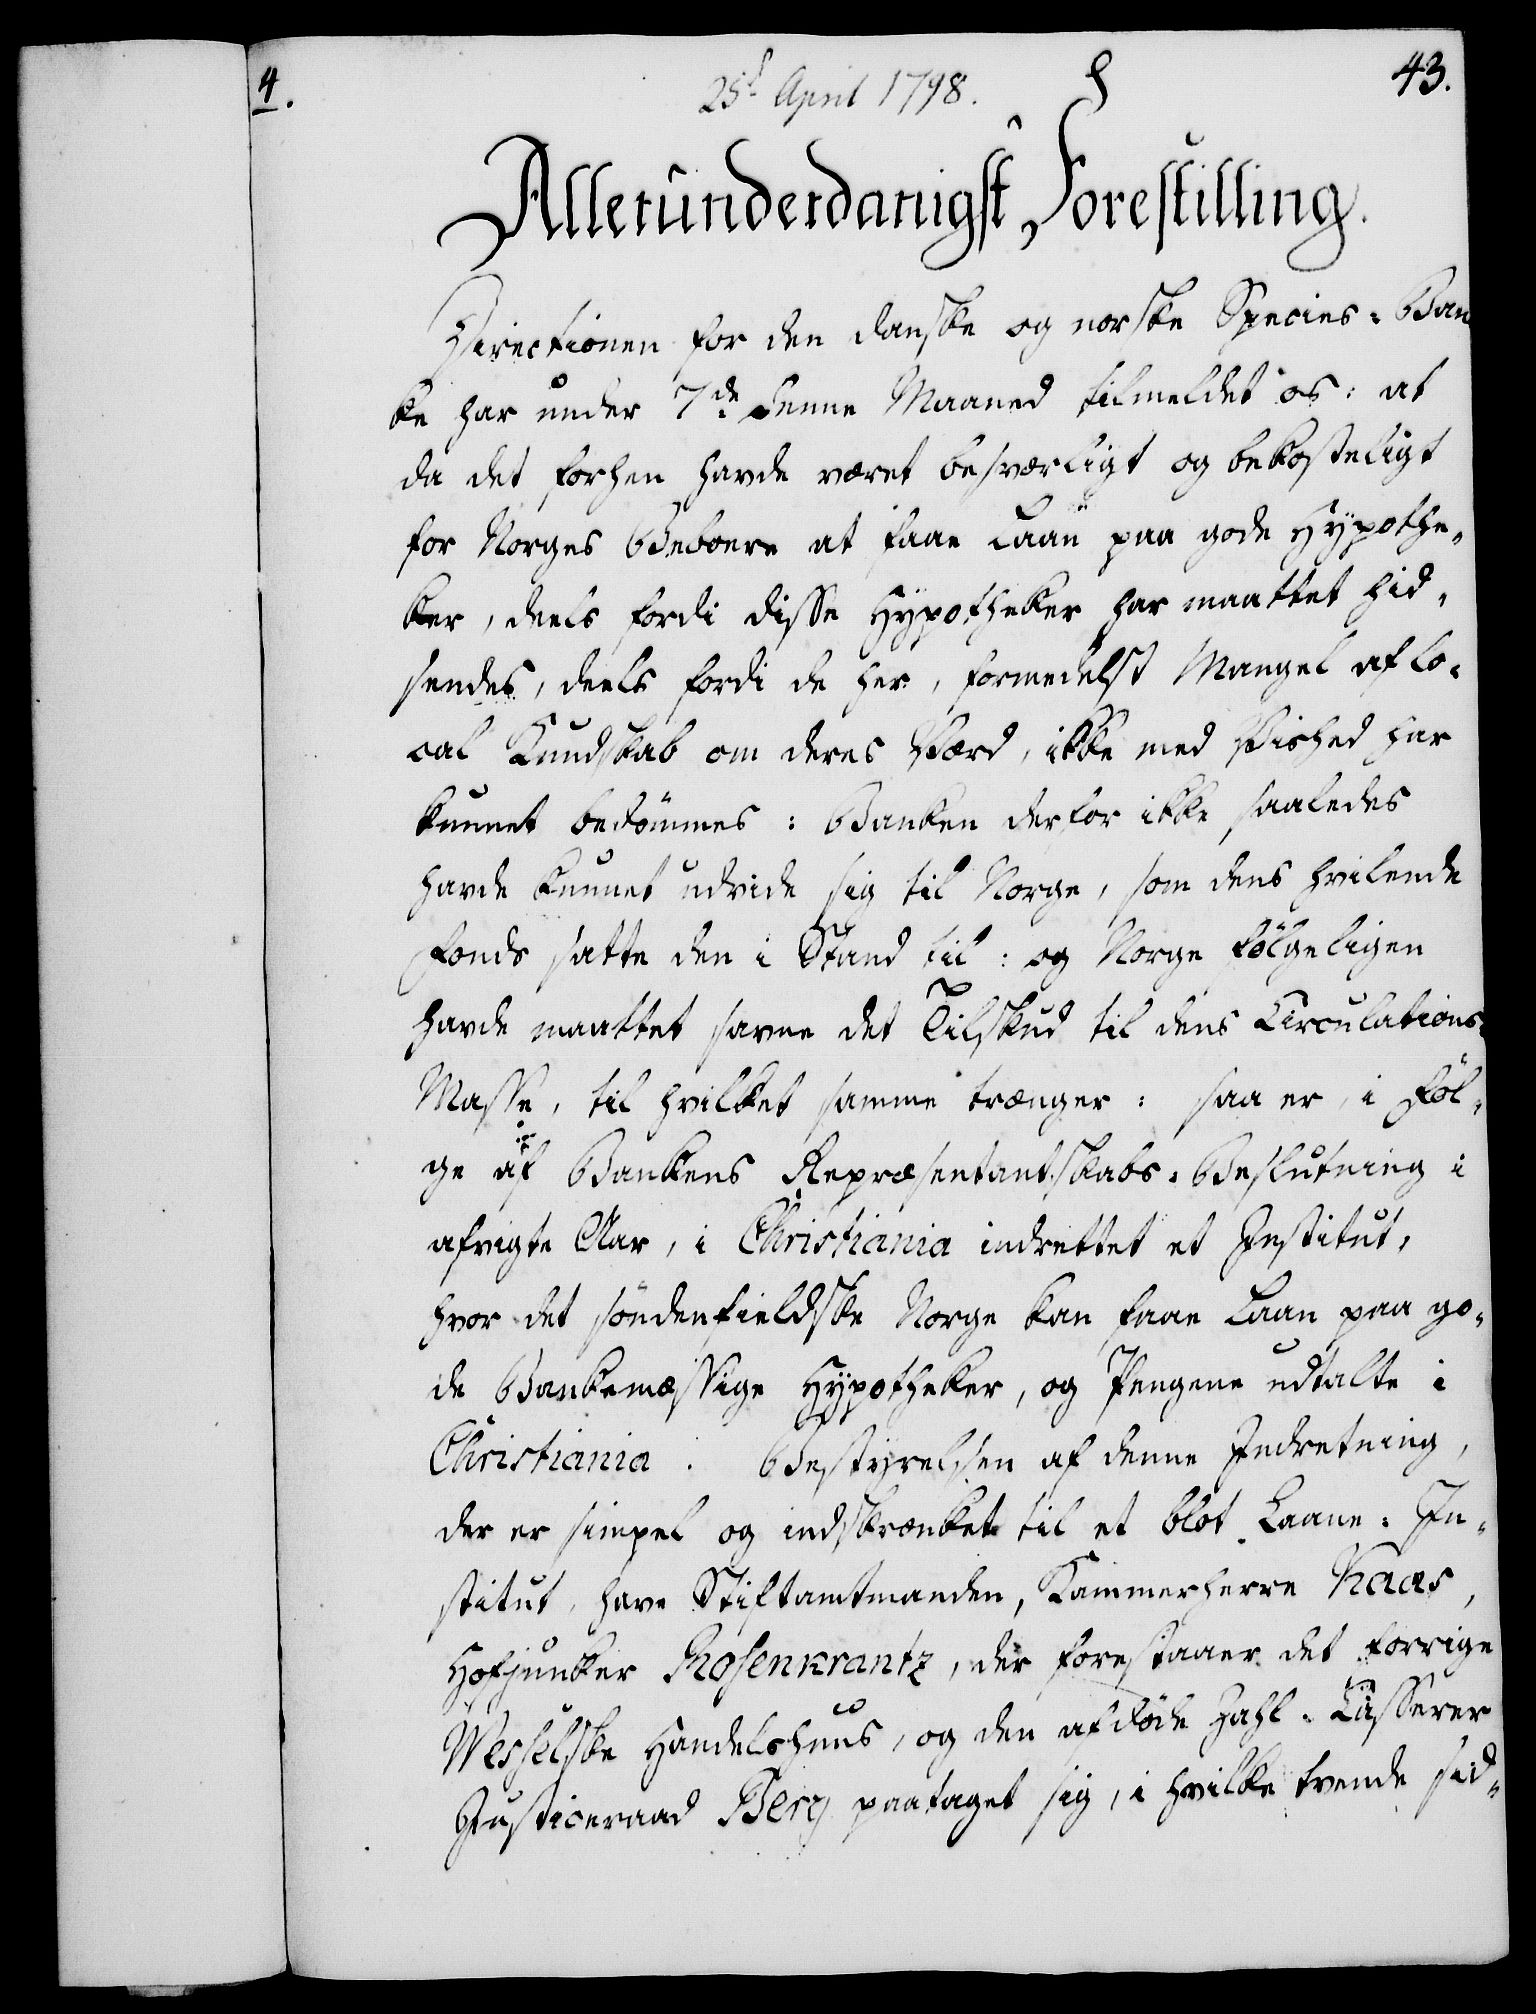 4.
25d April 1798.
43.
Allerunderdanigst Forestilling.
Directionen for den danske og norske Species-Ban
ke har under 7de denne Maaned tilmeldet os: at
da det forhen havde været besværligt og bekosteligt
for Norges Beboere at faae Laan paa gode Hypothe-
ker, deels fordi disse Hypotheker har maattet hid-
sendes, deels fordi de her, formedelst Mangel af lo-
cal Kundskab om deres Værd, ikke med Vished har
kunnet bedømmes: Banken derfor ikke saaledes
havde kunnet udvide sig til Norge, som dens hvilende
Fonds satte den i Stand til: og Norge følgeligen
havde maattet savne det Tilskud til dens Circulations-
Masse, til hvilket samme trænger: saa er, i Føl-
ge af Bankens Repræsentantskabs-Beslutning i
afvigte Aar, i Christiania indrettet et Institut,
hvor det søndenfieldske Norge kan faae Laan paa go-
de Bankemæssige Hypotheker, og Pengene udtalte i
Christiania. Bestyrelsen af denne Indretning,
der er simpel og indskrænket til et blot Laane-In-
stitut, have Stiftamtmanden, Kammerherre Kaas,
Hofjunker Rosenkrantz, der forestaaer det forrige
Wesselske Handelshuus, og den afdøde Zahl-Casserer
Justiceraad Berg paataget sig, i hvilke tvende sid-